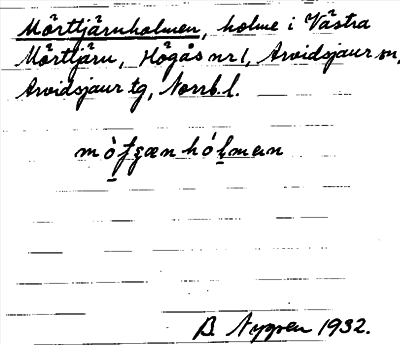 Mörttjärnholmen, holme i Västra
Mörttjärn, Högås nr 1, Arvidsjaur sn,
Arvidsjaur tg, Norrb. l.
B. Nygren 1932.